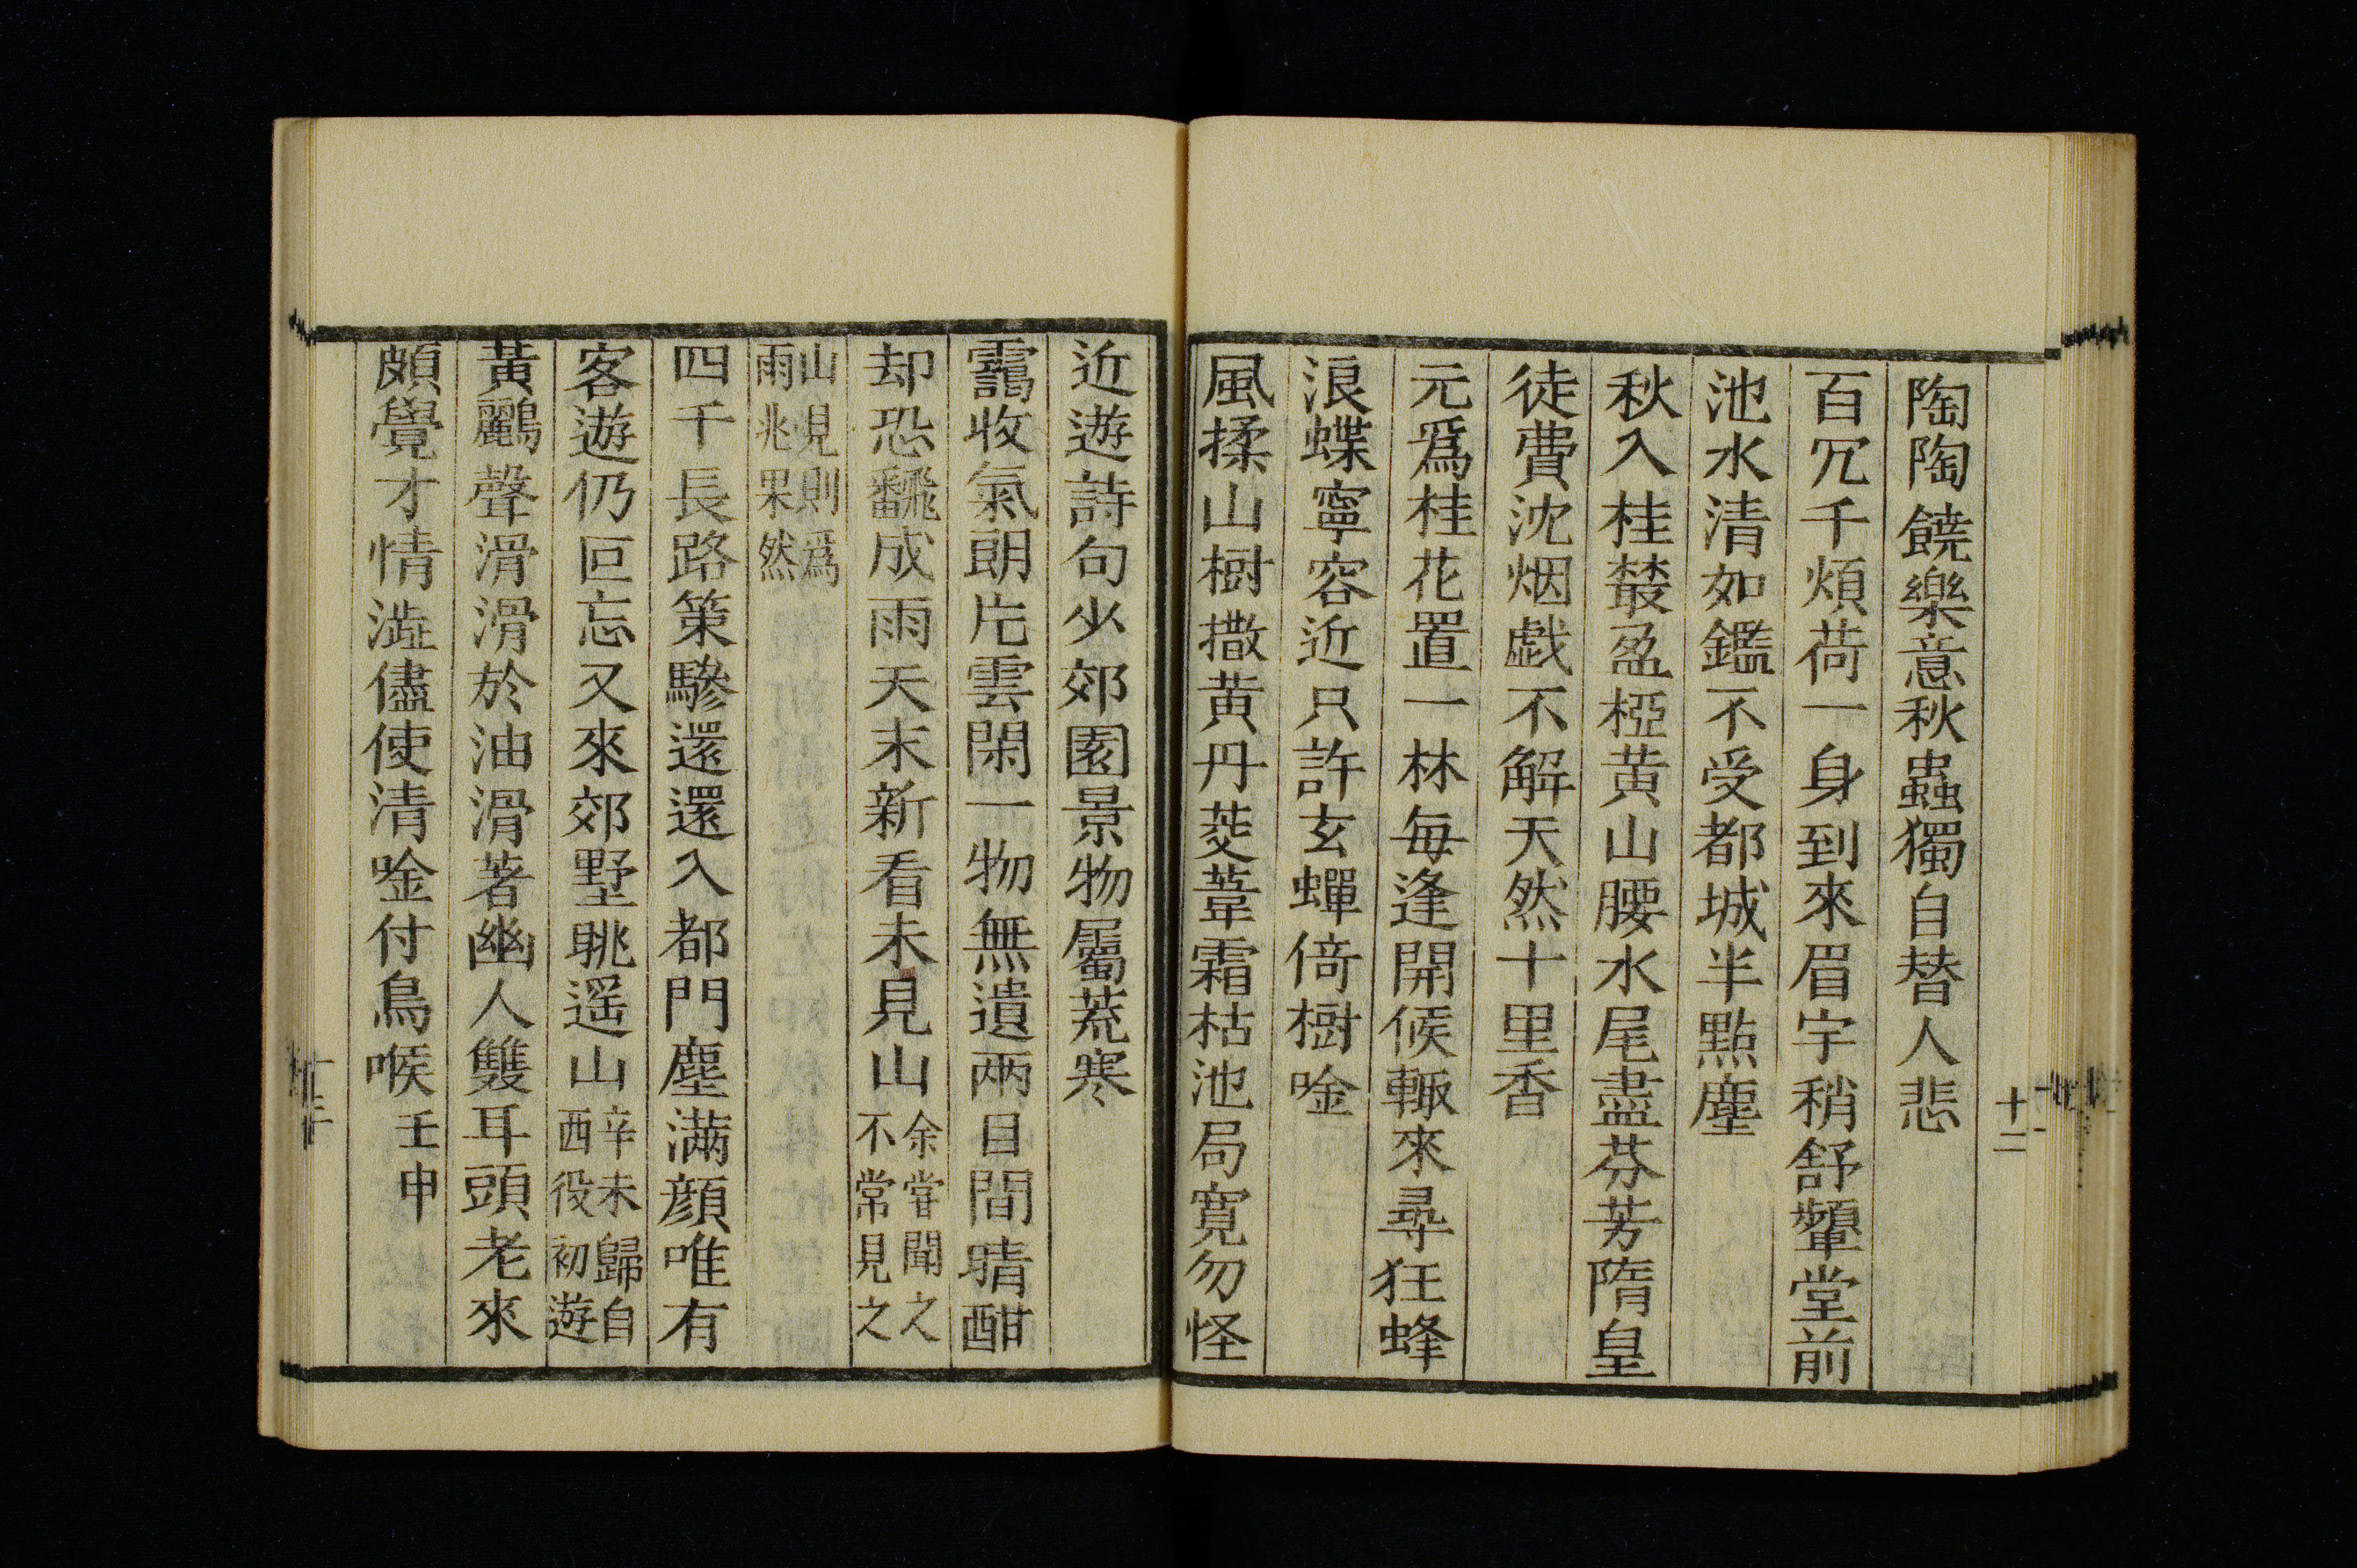 陶陶饒樂意秋蟲獨自替人悲
百冗千煩荷一身到來眉宇稍舒顰堂前
池水清如鑑不受都城半點塵
秋入桂叢盈椏黄山腰水尾盡芬芳隋皇
徒費沈烟戯不解天然十里香
元爲桂花置一林毎逢開候輙來尋狂蜂
浪蝶寧容近只許玄蟬倚樹唫
風揉山樹撒黄丹茭葦霜枯池局寛勿怪
近遊詩句少郊園景物屬荒寒
靄收氣朗片雲閑一物無遺兩目間晴酣
却恐飜成雨天末新看未見山余嘗聞之
不常見之
山見則爲
雨兆果然
四千長路策驂還還入都門塵滿顔唯有
客遊仍叵忘又來郊墅眺遥山辛未歸自
西役初遊
黃鸝聲滑滑於油滑著幽人雙耳頭老來
頗覺才情澁儘使清唫付鳥喉壬申
十二